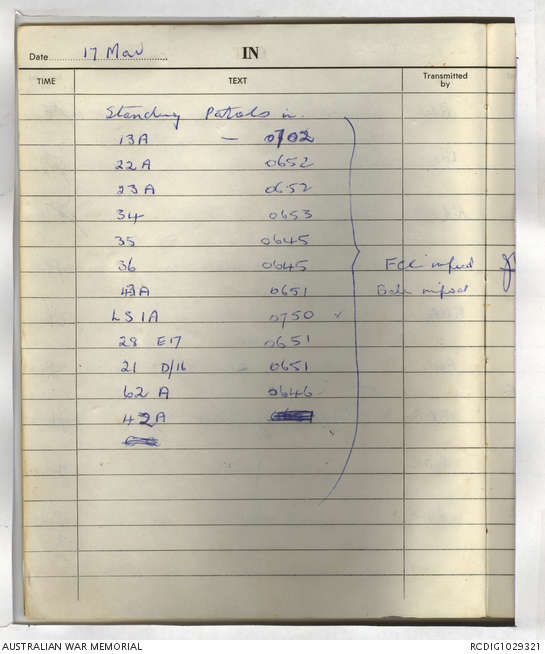 Date 17 Mar IN
TIME TEXT Transmitted by
Standing Patrols in.
13A — 0702
22A 0652
23A 0652
34 0653
35 0645
36 0645
43A 0651
LS1A 0750 ✓
28 E17 0651
21 D/16 0651
62 A 0646
42A
informed
informed
AUSTRALIAN WAR MEMORIAL RCDIG1029321